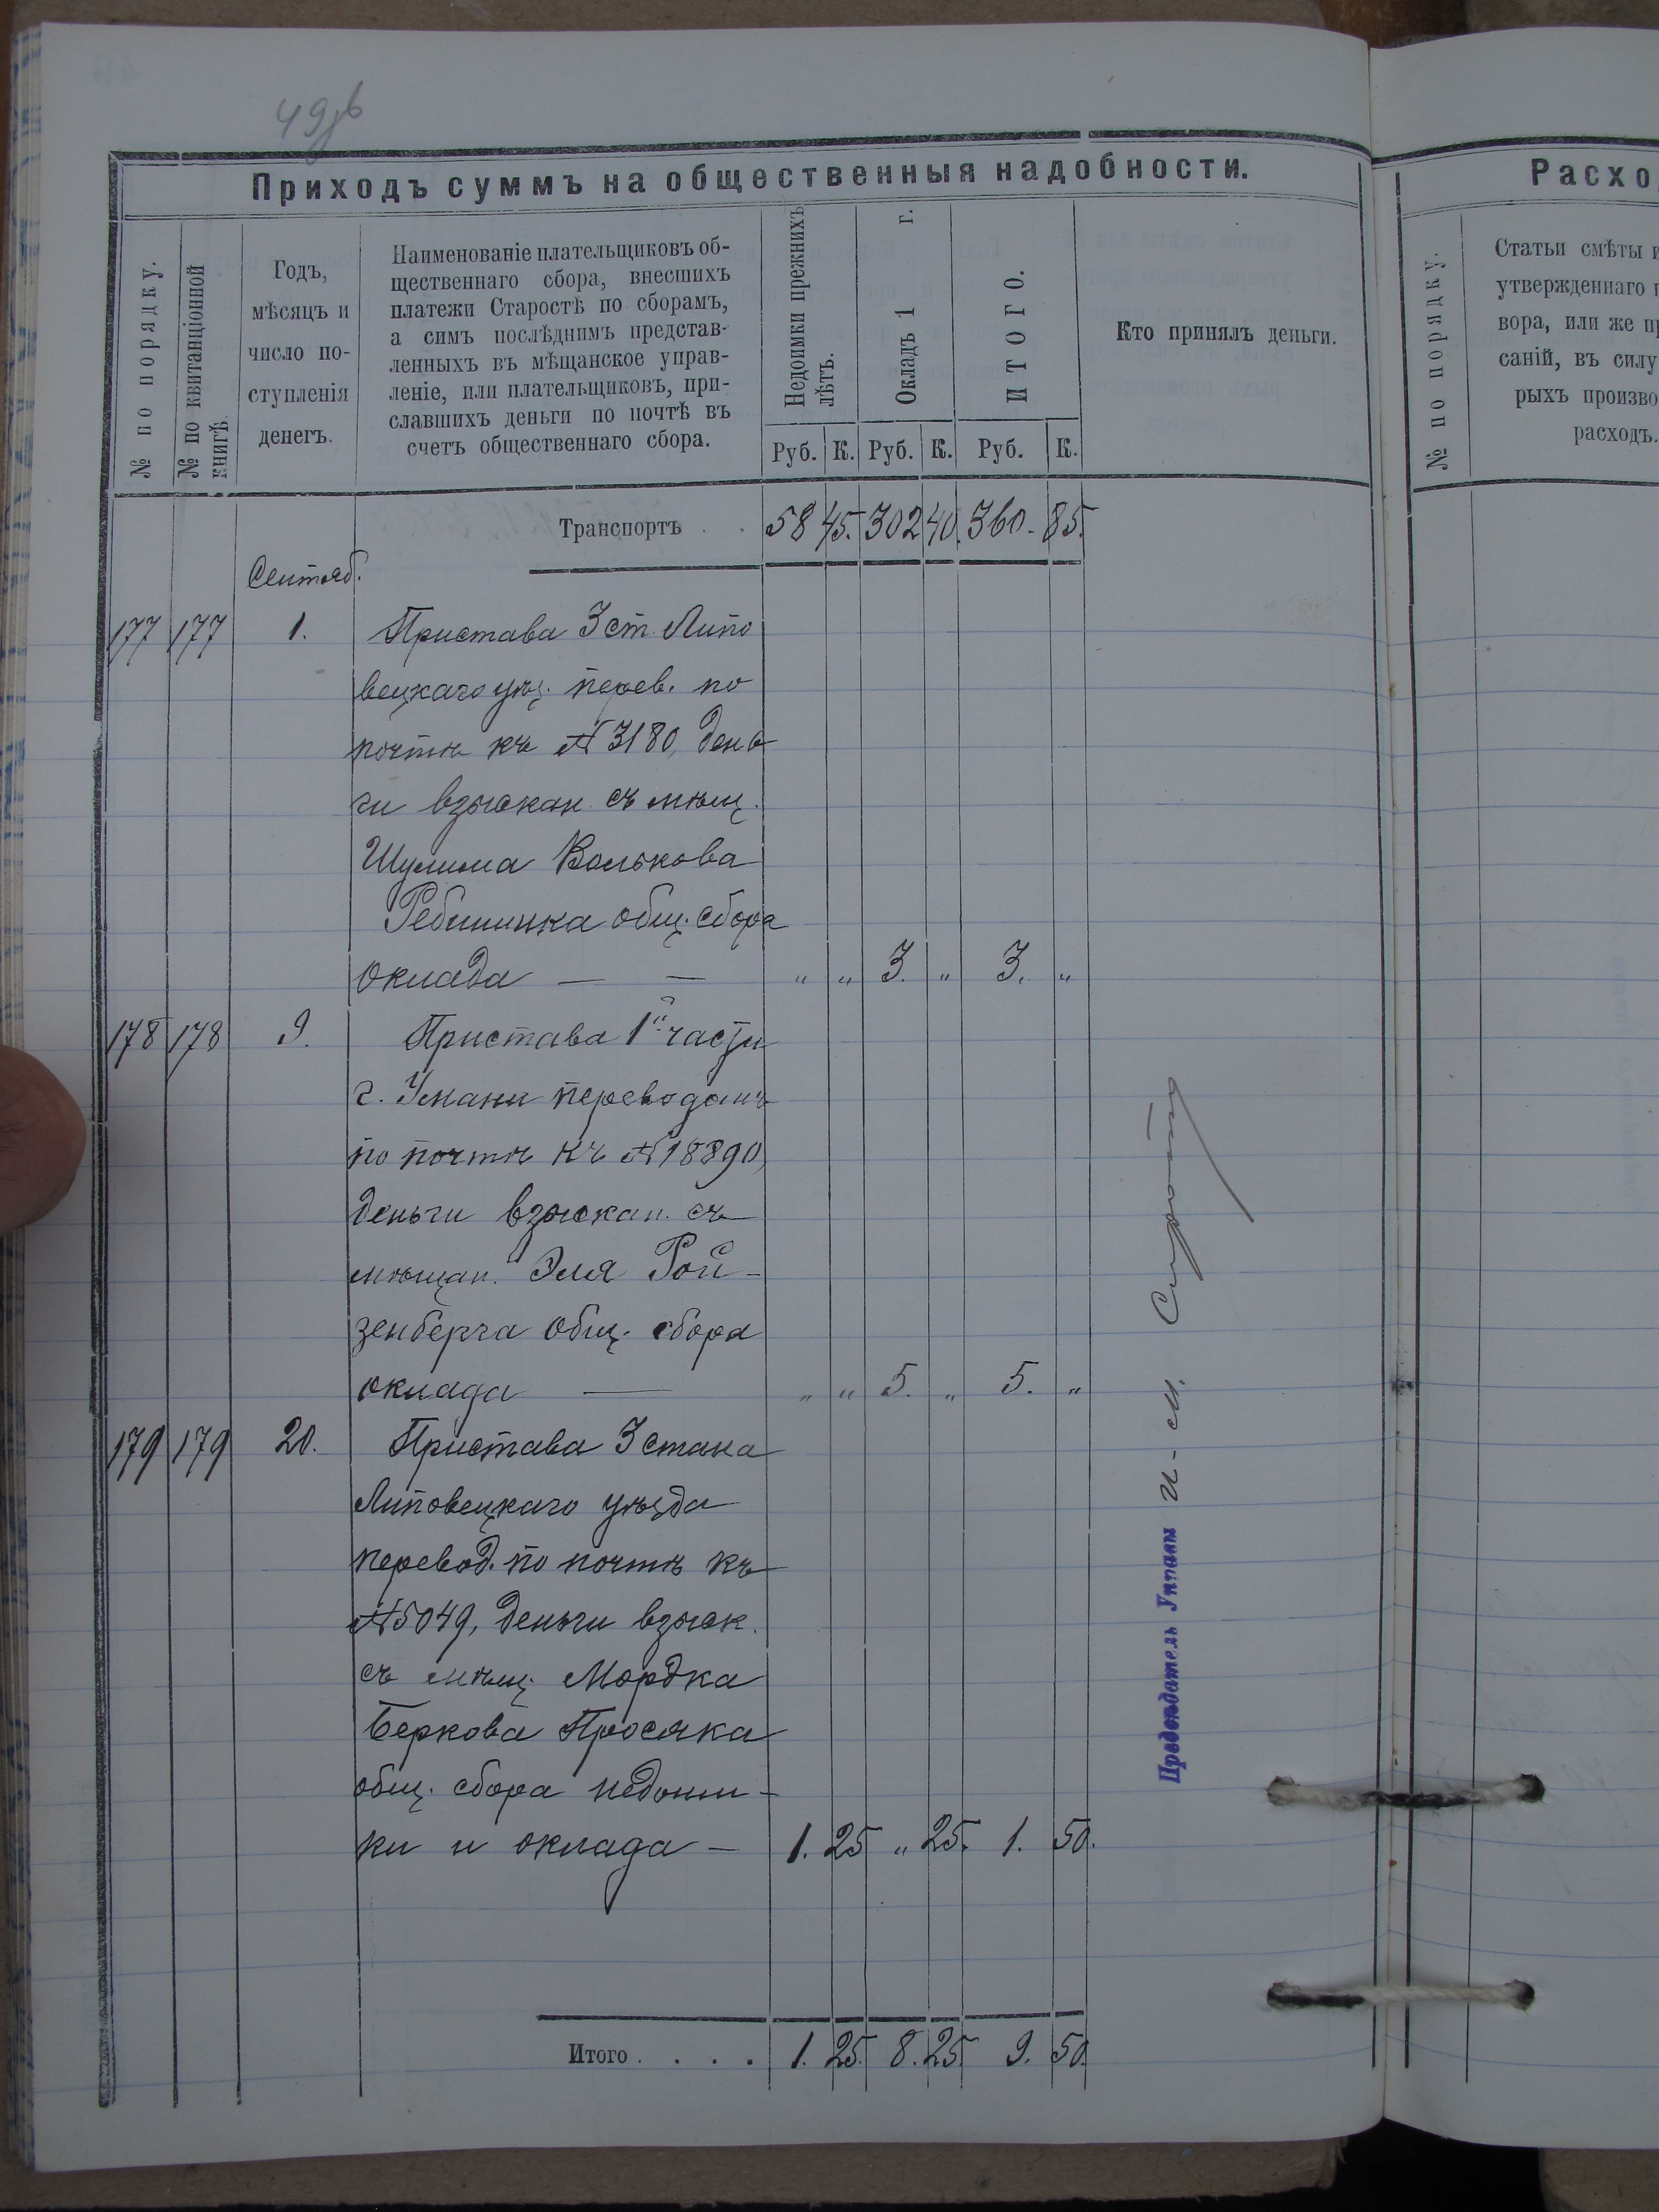 49об
Приходъ суммъ на общественныя надобности.
№ по порядку.
№ по квитанціонной
книгѣ.
Годъ,
мѣсяцъ и
число по-
ступленія
денегъ.
Наименованіе плательщиковъ об-
щественнаго сбора, внесшихъ
платежи Старостѣ по сборамъ,
а симъ послѣднимъ представ-
ленныхъ въ мѣщанское управ-
леніе, или плательщиковъ, при-
славшихъ деньги по почтѣ въ
счетъ общественнаго сбора.
Недоимки прежнихъ
лѣтъ.
Окладъ 1 г.
ИТОГО.
Кто принялъ деньги.
Руб. К. Руб. К. Руб. К.
Транспортъ . . 58 45. 302 40. 360. 85.
Сентяб.
177 177 1. Пристава 3 ст. Липо
вецкаго уѣз. перев. по
почтѣ къ № 3180, день
ги взыскан. съ мѣщ.
Шулима Волькова
общ. сбора
оклада — — „ „ 3. „ 3. „
178 178 9. Пристава 1й части
г. Умани переводомъ
по почтѣ къ № 18890,
деньги взыскан. съ
мѣщан. Эля Рой-
зенберга общ. сбора
оклада — „ „ 5. „ 5. „
179 179 20. Пристава 3 стана
Липовецкаго уѣзда
перевод. по почтѣ къ
№ 5049, деньги взыск.
съ мѣщ. Мордка
Беркова Просяка
общ. сбора недоим-
ки и оклада — 1. 25 „ 25. 1. 50.
Итого . . . . 1. 25. 8. 25. 9. 50.
Предсѣдатель Управы И. М.
Расхо
№ по порядку.
Статьи смѣты и
утвержденнаго п
вора, или же пр
саній, въ силу
рыхъ произво
расходъ.